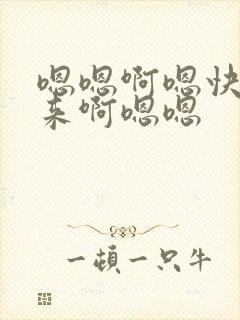 嗯嗯啊嗯快
来啊嗯嗯
一顿一只牛